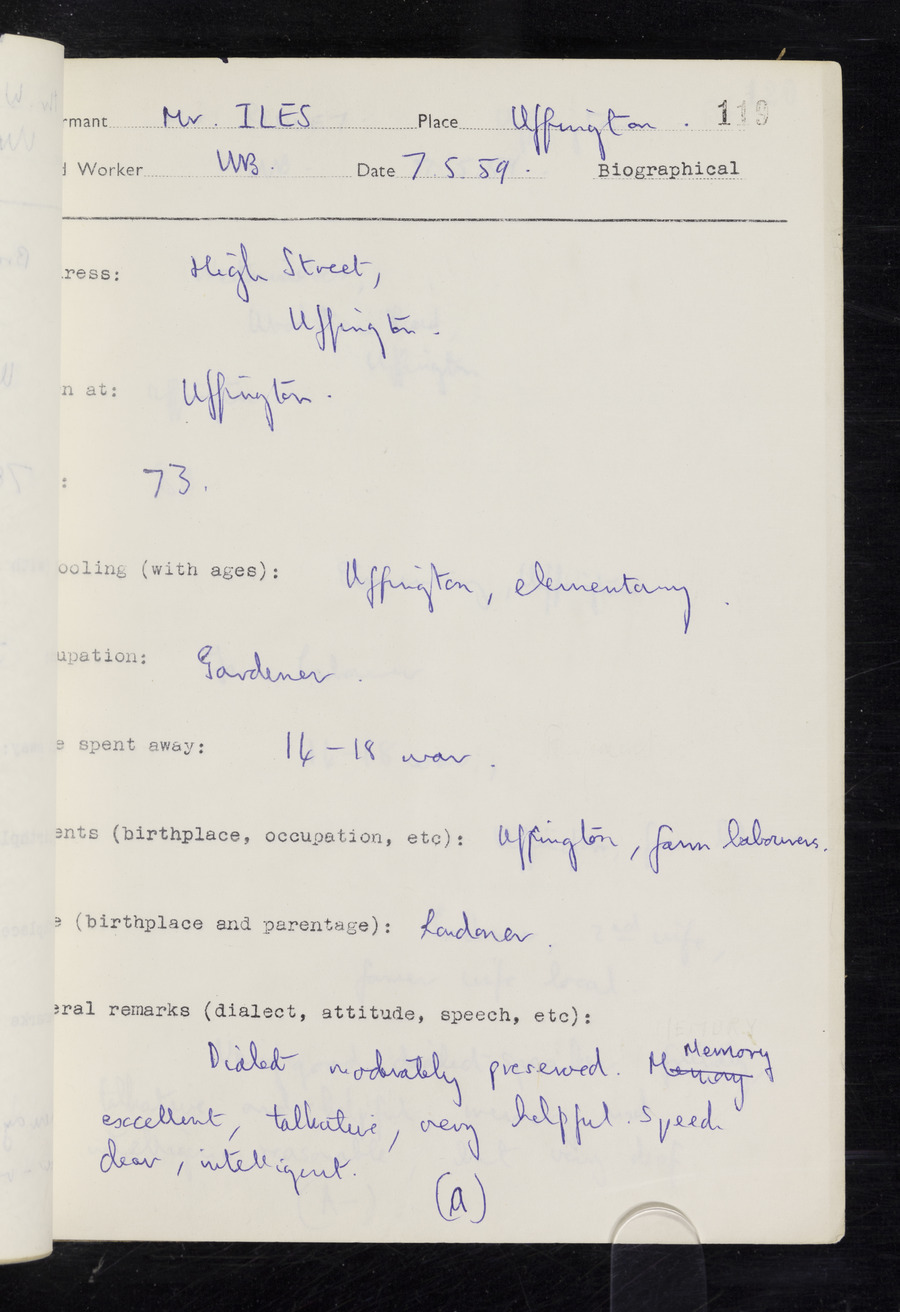 rmant Mr. ILES Place Uffington. 119
d Worker WB. Date 7.5.59. Biographical
ress: High Street,
Uffington.
n at: Uffington.
: 73.
ooling (with ages): Uffington, elementary.
upation: Gardener.
e spent away: 14-18 war.
ents (birthplace, occupation, etc): Uffington, farm labourers.
e (birthplace and parentage): Londoner.
eral remarks (dialect, attitude, speech, etc):
Dialect moderately preserved. Memory
excellent, talkative, very helpful. Speech
clear, intelligent.
(a)